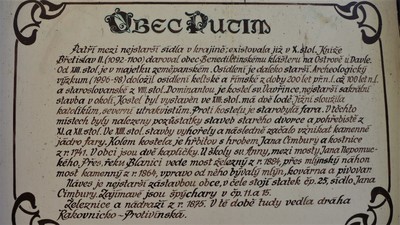 OBEC PUTIM
Patří mezi nejstarší sídla v krajině; existovala již v X. stol. Kníže
Břetislav II. (1092-1100) daroval obec Benediktinskému klášteru na Ostrově u Davle.
Od XIII. stol. je v majetku zeměpanském. Osídlení je daleko starší. Archeologický
výzkum (1996-98) doložil osídlení keltské a římské z doby 200 let př. n. l. až 100 let n. l.
a staroslovanské z VIII. stol. Dominantou je kostel sv. Vavřince, nejstarší sakrální
stavba v okolí. Kostel byl vystavěn ve XIII. stol., má dvě lodě. Jižní sloužila
katolíkům, severní utrakvistům. Proti kostelu je starobylá fara. V těchto
místech byly nalezeny pozůstatky staveb starého dvorce a pohřebiště z
XI. a XII. stol. Ve XIII. stol. stavby vyhořely a následně začalo vznikat kamenné
jádro fary. Kolem kostela je hřbitov s hrobem Jana Cimbury a kostnice
z r. 1741. V obci jsou dvě kapličky. U školy sv. Anny, mezi mosty Jana Nepomuc-
kého. Přes řeku Blanici vede most železný z r. 1894, přes mlýnský náhon
most kamenný z r. 1864, vpravo od něho býval mlýn, kovárna a pivovar.
Náves je nejstarší zástavbou obce, v čele stojí statek čp. 25, sídlo Jana
Cimbury. Zajímavé jsou špýchary v čp. 11. a 15.
Železnice a nádraží z r. 1875. V té době tudy vedla dráha
Rakovnicko-Protivínská.